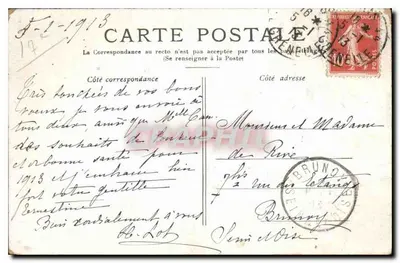 5-1-1913
CARTE POSTALE
La Correspondance au recto n'est pas acceptée par tous les pays
(Se renseigner à la Poste)
Côté correspondance
Côté adresse
Très touchés de vos bons
vœux je vous envoie à
tous deux ainsi que Melle
des souhaits de bonheur
et bonne santé pour
1913 et j'embrasse bien
fort votre gentille
Ernestine
Bien cordialement à vous
Monsieur et Madame
de
rue des Étangs
Brunoy
Seine et Oise
BRUNOY